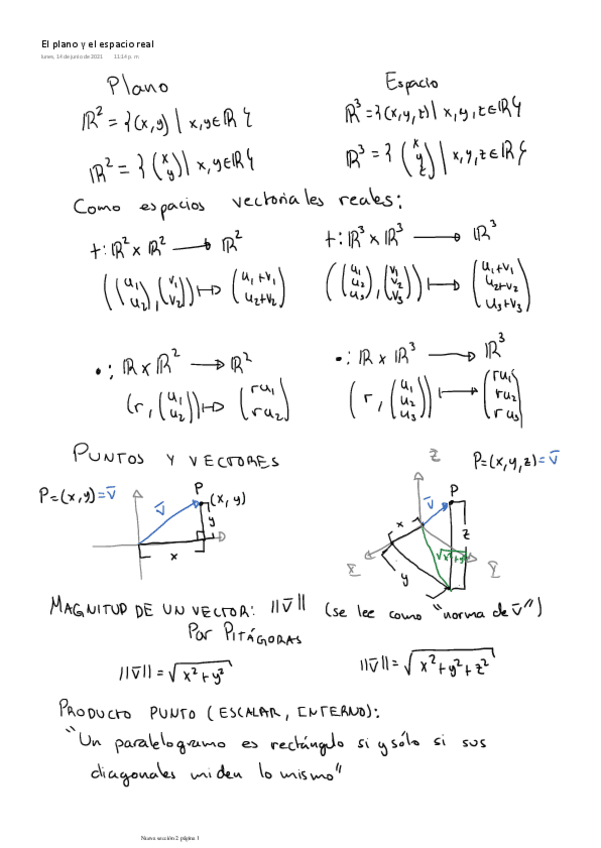 El plano y el espacio real
lunes, 14 de junio de 2021 11:14 p. m.
Plano Espacio
ℝ² = {(x,y) | x,y∈ℝ} ℝ³ = {(x,y,z) | x,y,z∈ℝ}
ℝ² = {(x y) | x,y∈ℝ} ℝ³ = {(x y z) | x,y,z∈ℝ}
Como espacios vectoriales reales:
+: ℝ² x ℝ² → ℝ² +: ℝ³ x ℝ³ → ℝ³
((u₁ u₂), (v₁ v₂)) ↦ (u₁+v₁ u₂+v₂) ((u₁ u₂ u₃), (v₁ v₂ v₃)) ↦ (u₁+v₁ u₂+v₂ u₃+v₃)
•: ℝ x ℝ² → ℝ² •: ℝ x ℝ³ → ℝ³
(r, (u₁ u₂)) ↦ (ru₁ ru₂) (r, (u₁ u₂ u₃)) ↦ (ru₁ ru₂ ru₃)
PUNTOS Y VECTORES
P=(x,y)=v̄
P
(x,y)
v̄
y
x
P=(x,y,z)=v̄
z
P
v̄
x
z
√x²+y²
x
y
y
MAGNITUD DE UN VECTOR: ||v̄|| (se lee como "norma de v̄")
POR PITÁGORAS
||v̄|| = √x²+y² ||v̄|| = √x²+y²+z²
PRODUCTO PUNTO (ESCALAR, INTERNO):
"Un paralelogramo es rectángulo si y sólo si sus
diagonales miden lo mismo"
Nueva sección 2 página 1